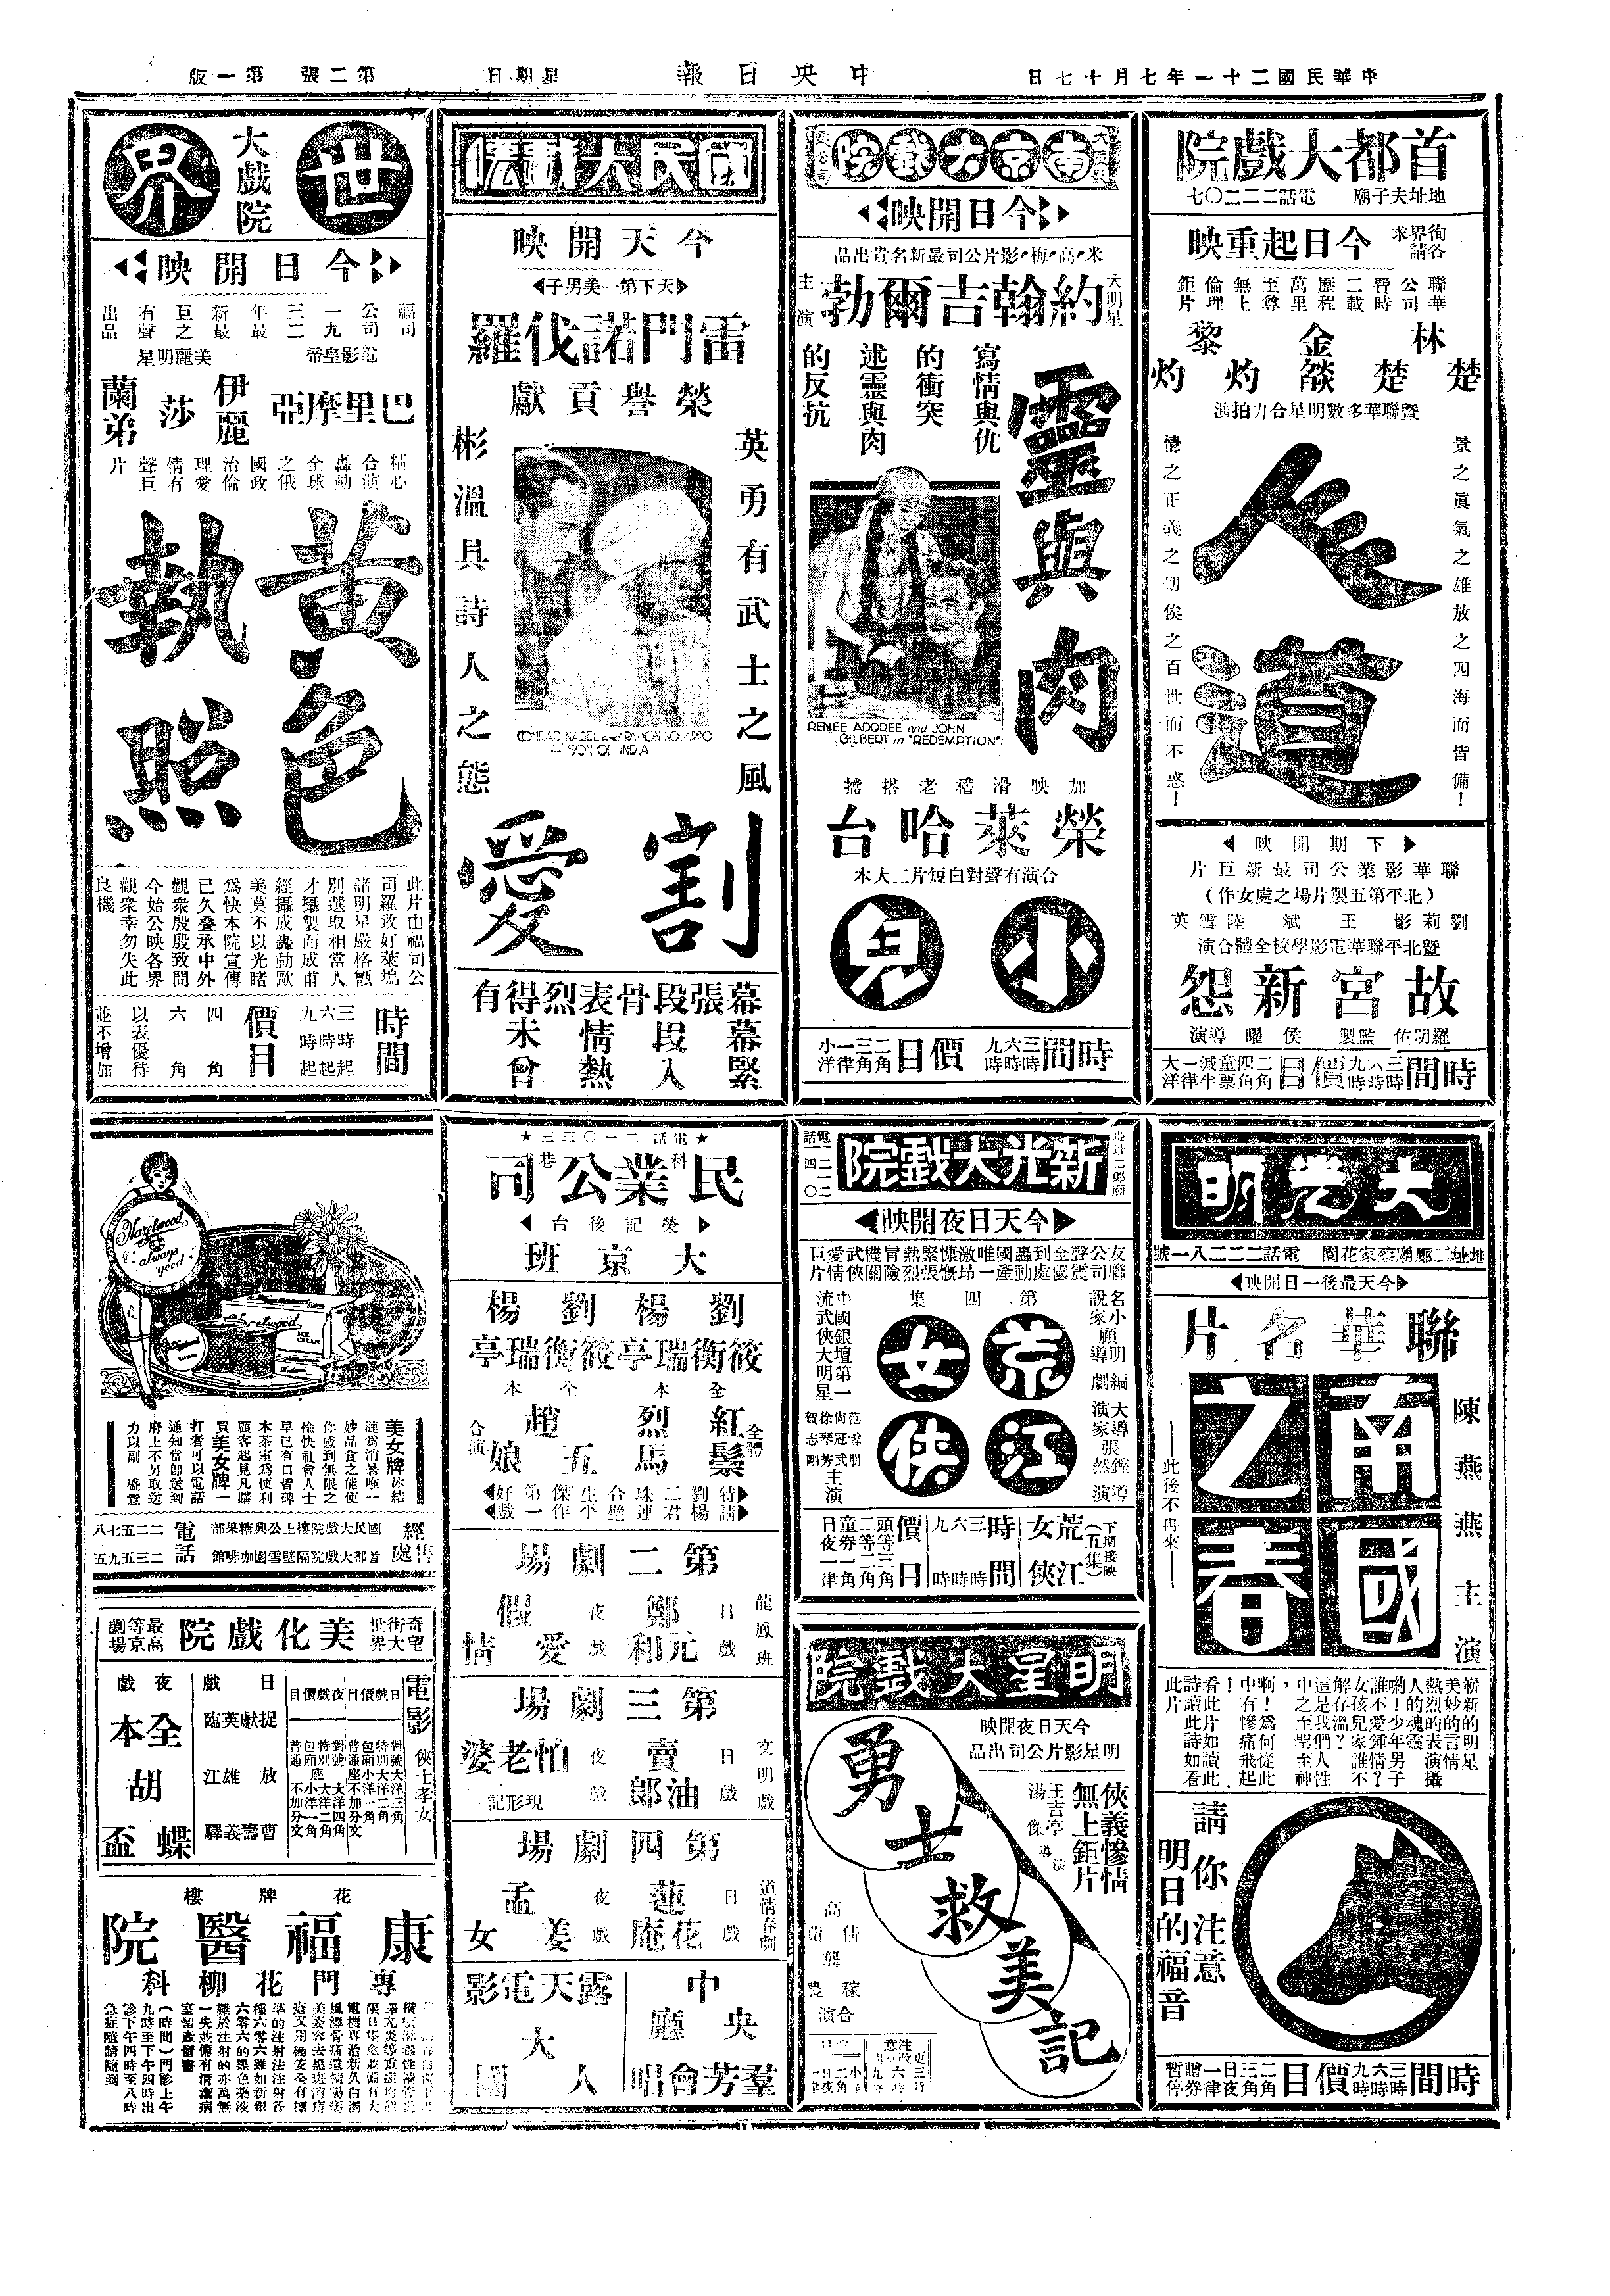 中華民國二十一年七月十七日
中央日報
星期日
第二張 第一版
首都大戲院
地址夫子廟 電話二二二〇七
徇各界請求
今日起重映
聯華公司費時二載歷程萬里至尊無上倫理鉅片
林楚楚
金燄
黎灼灼
暨聯華多數明星合力拍演
景之眞氣之雄放之四海而皆備！
人道
情之正義之切俟之百世而不惑！
下期開映
聯華影業公司最新巨片
（北平第五製片場之處女作）
劉莉影 王斌 陸雪英
暨北平聯華電影學校全體合演
故宮新怨
羅明佑監製 侯曜導演
時間
三時六時九時
價目
二角四角童票減半一律大洋
南京大戲院
今日開映
米高梅影片公司最新名貴出品
大明星
約翰吉爾勃
主演
靈與肉
寫情與仇的衝突
述靈與肉的反抗
RENEE ADOREE and JOHN GILBERT in "REDEMPTION"
加映滑稽老搭擋
榮萊哈台
合演有聲對白短片二大本
小兒
時間
三時六時九時
價目
二角三角一律小洋
國民大戲院
今天開映
天下第一美男子
雷門諾伐羅
榮譽貢獻
英勇有武士之風
彬溫具詩人之態
CONRAD NAGEL and RAMON NOVARRO in SON OF INDIA
割愛
幕幕緊張
段段入骨
表情熱烈
得未曾有
世界大戲院
今日開映
福司公司一九三二年最新最巨之有聲出品
電影皇帝 美麗明星
巴里摩亞
伊麗莎蘭弟
精心合演轟動全球之俄國政治倫理愛情有聲巨片
黃色執照
此片由福司公
司羅致好萊塢
諸明星嚴格甄
別選取相當人
才攝製而成甫
經攝成轟動歐
美莫不以先睹
爲快本院宣傳
已久疊承中外
觀衆殷殷致問
今始公映各界
觀衆幸勿失此
良機
時間
三時起
六時起
九時起
價目
四角
六角
以表優待
並不增加
大光明
地址二廊廟蔡家花園 電話二二二八一號
今天最後一日開映
聯華名片
陳燕燕主演
南國之春
此後不再來
嶄新的明星
美妙的言情
熱烈的表演攝
人的魂靈
喲！少年男子
誰不愛鍾情？
女孩兒家誰不
解存溫？
這是我們人性
中之至聖至神
，
啊！爲何從此
中有慘痛飛起
！
看此片如讀此
詩讀此詩如看
此片
請你注意
明日的福音
時間
三時六時九時
價目
二角三角日夜一律贈券暫停
新光大戲院
今天日夜開映
友聯公司聲震全國到處轟動國產唯一激昂慷慨緊張熱烈冒險機關武俠愛情巨片
名小說家顧明道編劇
大導演家張然鏗導演
第四集
荒江女俠
中國銀壇第一流武俠大明星
主演
下期接映
（五集）
荒江女俠
時間
三時六時九時
價目
頭等三角
二等二角
童券一角
日夜一律
明星大戲院
今天日夜開映
明星影片公司出品
俠義慘情無上鉅片
王吉亭
湯傑
導演
勇士救美記
高倩蘋
合演
電話二一〇三三
科巷
民業公司
榮記後台
大京班
劉筱衡
楊瑞亭
劉筱衡
楊瑞亭
全本
紅鬃烈馬
全本
趙五娘
全體
合演
特請劉楊二君珠連合璧生平傑作第一好戲
第二劇場
龍鳳班
日戲
鄭元和
夜戲
假愛情
第三劇場
文明戲
日戲
賣油郎
夜戲
怕老婆
現形記
第四劇場
道情春劇
日戲
蓮花庵
夜戲
孟姜女
中央廳
羣芳會唱
露天電影
大人國
Hazelwood always good
Hazelwood ICE CREAM
美女牌冰結
漣爲消暑唯一
妙品食之能使
你感到無限之
愉快社會人士
早已有口皆碑
本茶室爲便利
顧客起見凡購
買美女牌一
打者可以電話
通知當卽送到
府上不另取送
力以副 盛意
經售處
國民大戲院樓上公興糖果部
首都大戲院隔壁雪園咖啡館
電話
二二五七八
二三五九五
奇術世界
美化戲院
電影
俠士孝女
日戲價目
夜戲價目
日戲
夜戲
全本
胡蝶盃
花牌樓
康福醫院
專門花柳科
（時間）門診上午
九時至下午四時出
診下午四時至八時
急症隨請隨到